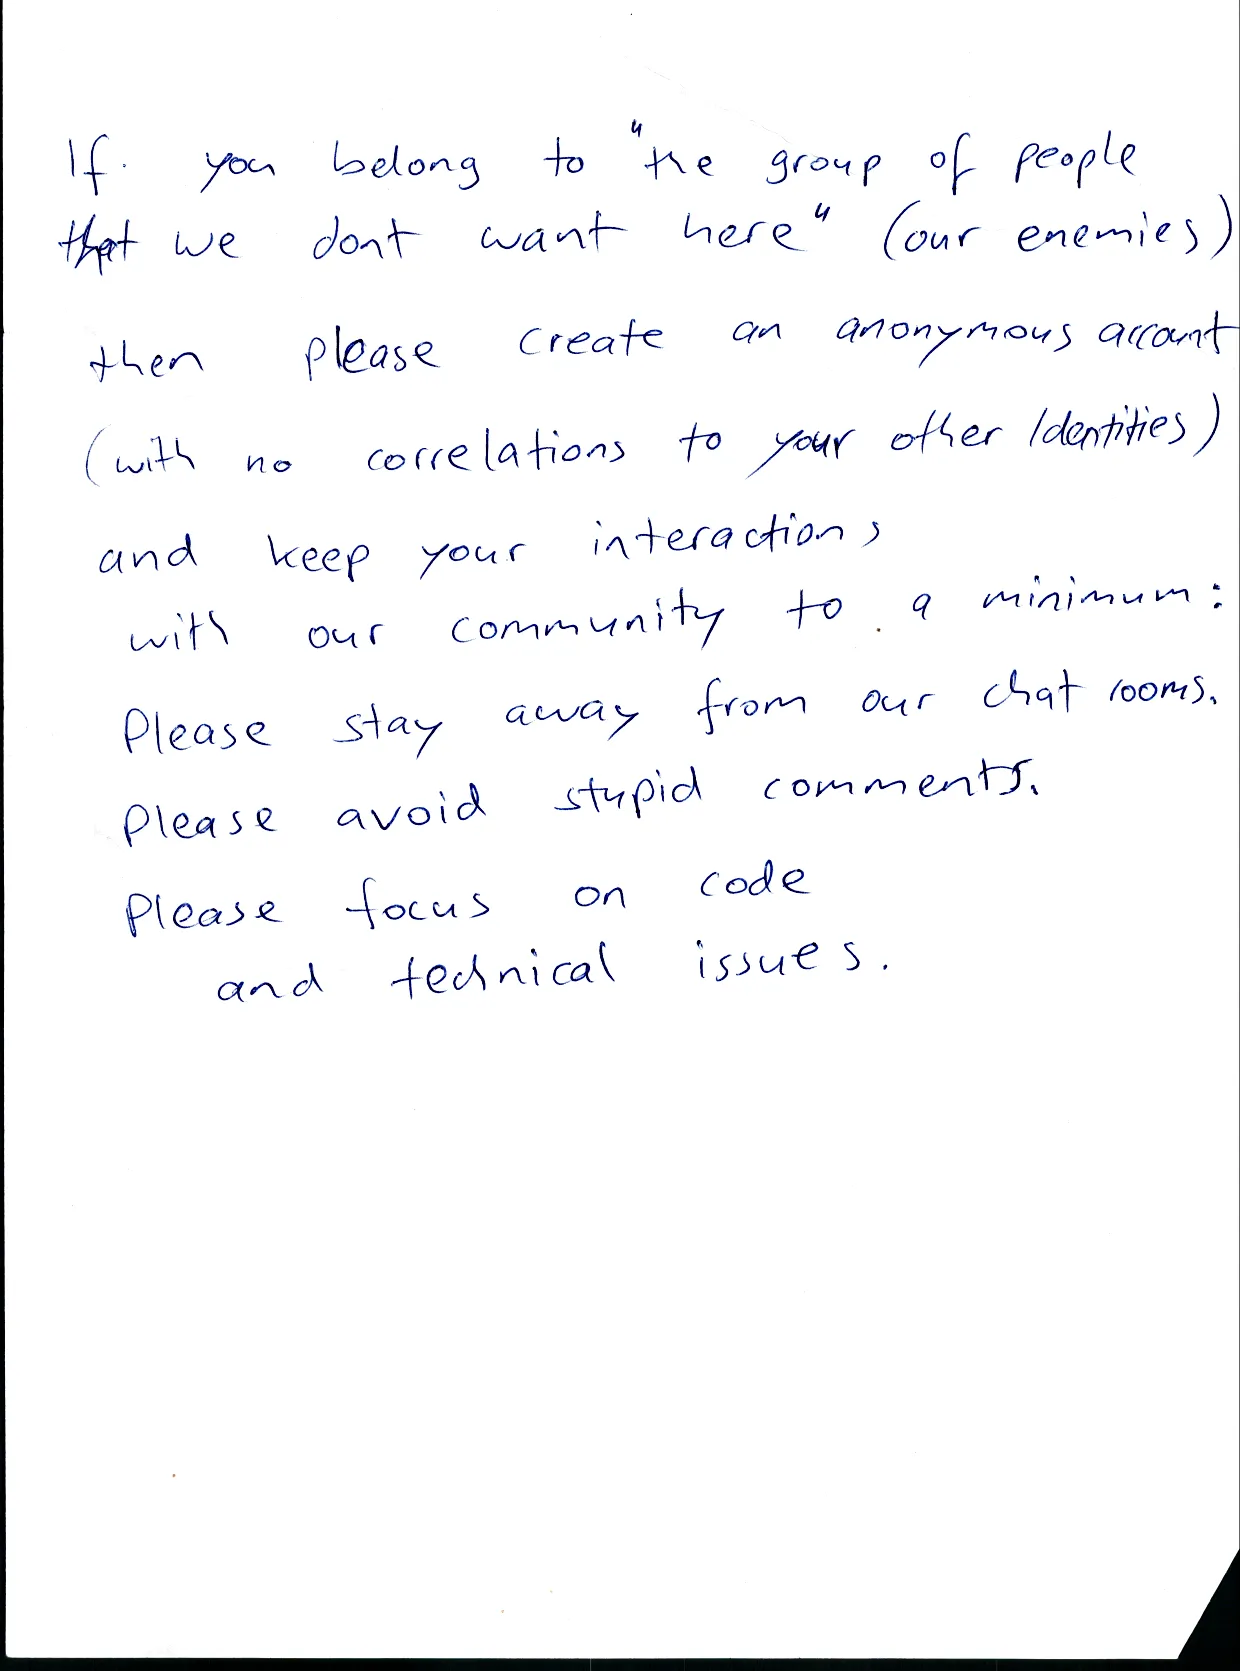 If you belong to "the group of people
that we dont want here" (our enemies)
then please create an anonymous account
(with no correlations to your other Identities)
and keep your interactions
with our community to a minimum:
Please stay away from our chat rooms.
Please avoid stupid comments.
Please focus on code
and technical issues.